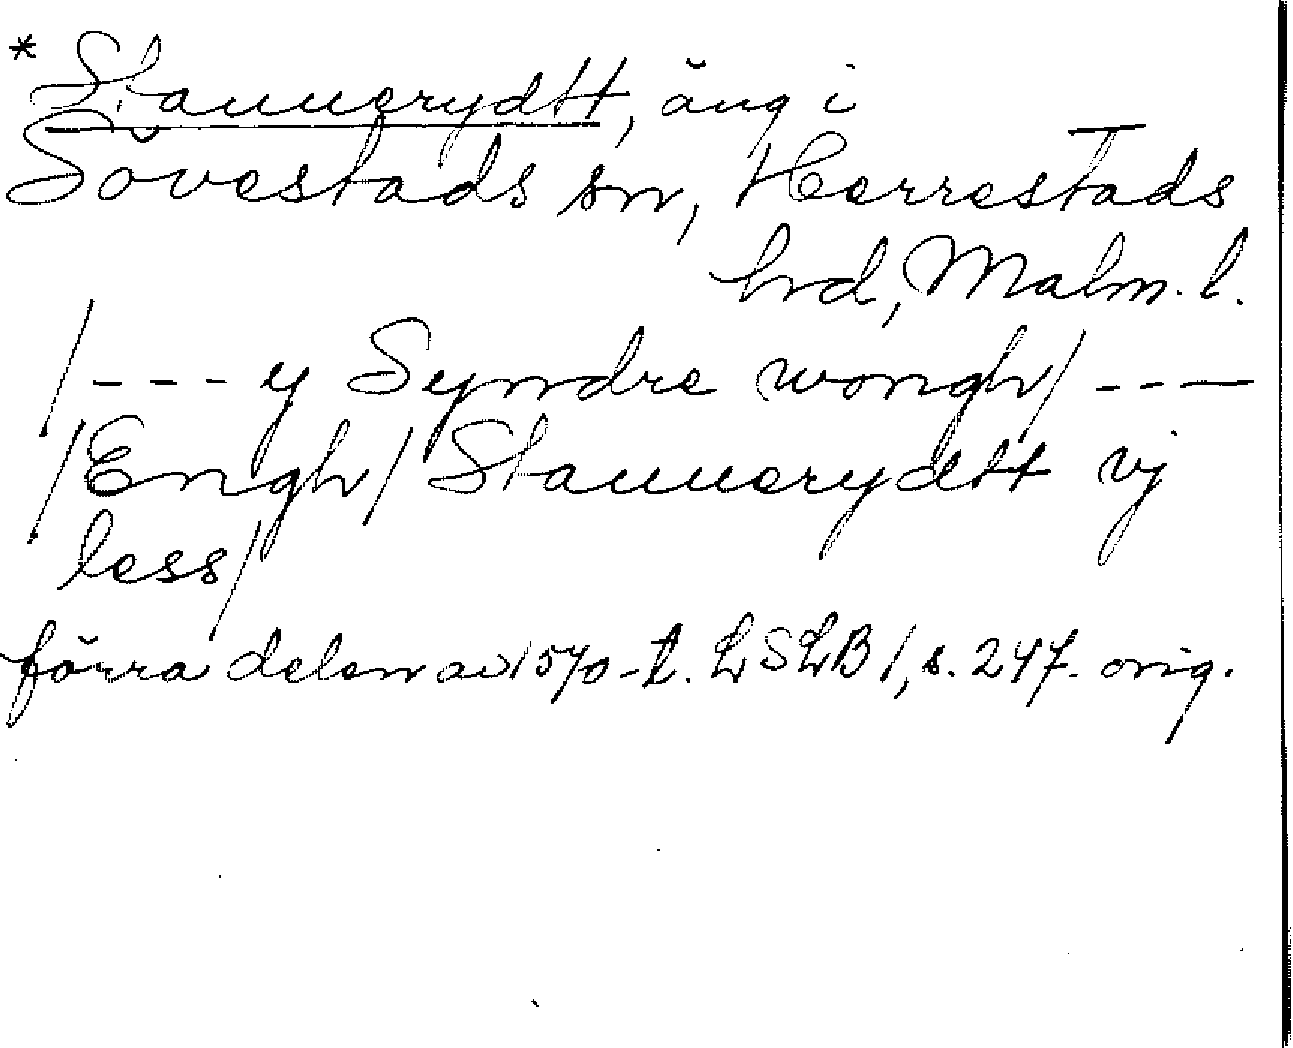 * Stauuerydtt, äng i
Sövestads sn, Herrestads
hrd, Malm. l.
/--- y Syndre wongh/ ---
/Engh/ Stauuerydtt vj
less/
förra delen av 1570-t. LSLB 1, s. 247. orig.